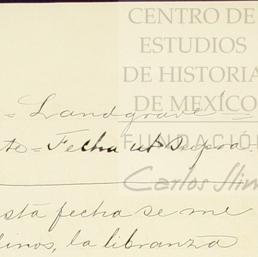 CENTRO DE
ESTUDIOS
DE HISTORIA
DE MÉXICO
FUNDACIÓN
Carlos Slim
= Landgrave
to = Fecha ut Supra.
sta fecha se me
inos, la libranza